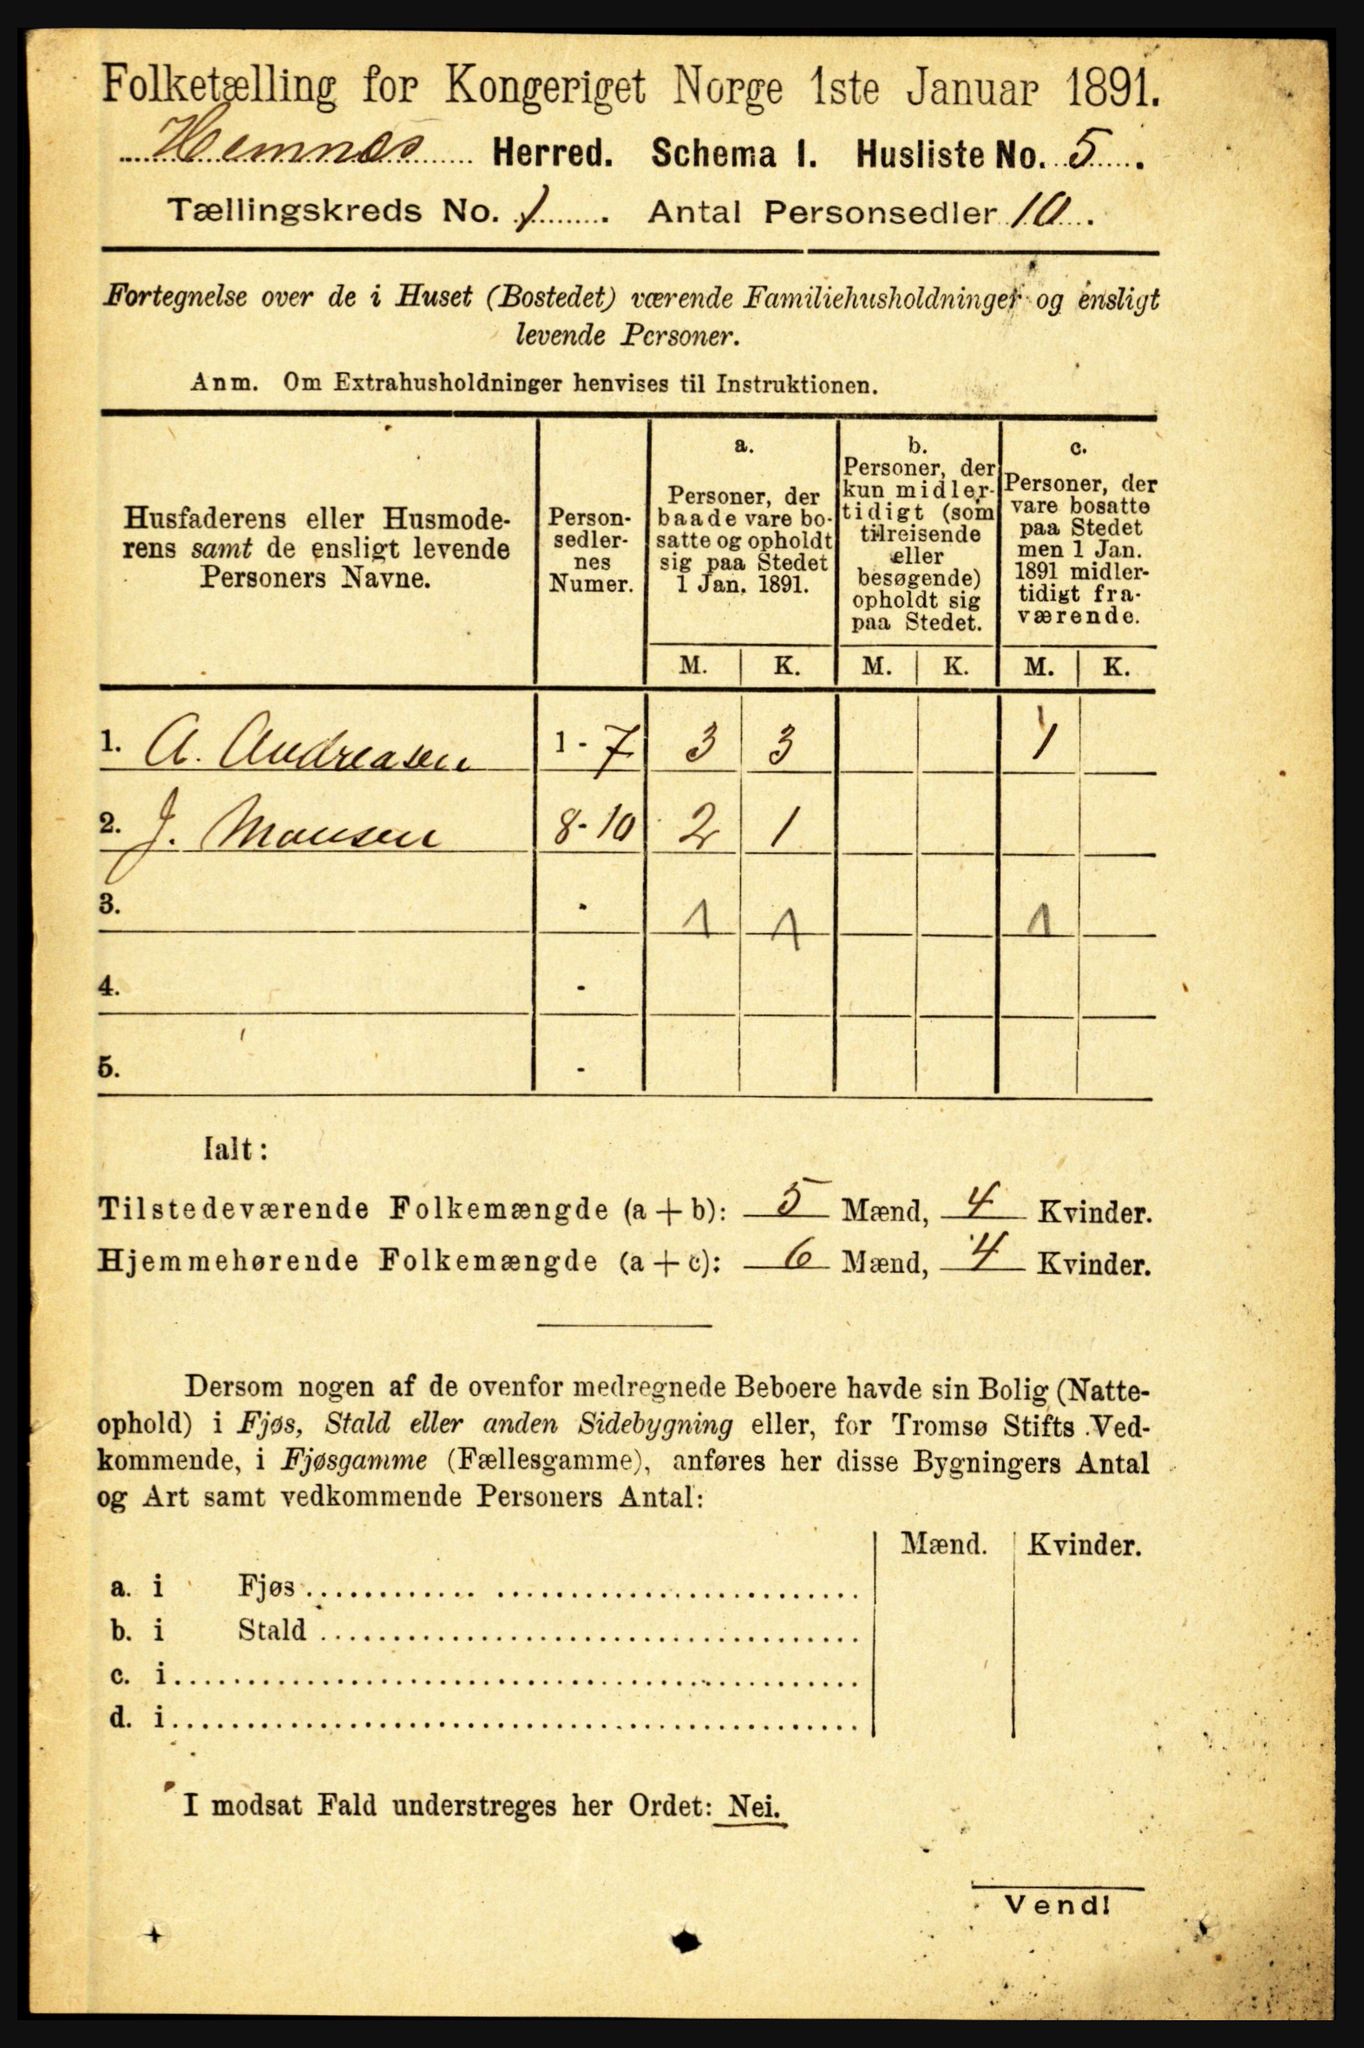 Folketælling for Kongeriget Norge 1ste Januar 1891.
Hemnæs Herred. Schema I. Husliste No. 5.
Tællingskreds No. 1. Antal Personsedler 10.
Fortegnelse over de i Huset (Bostedet) værende Familiehusholdninger og ensligt
levende Personer.
Anm. Om Extrahusholdninger henvises til Instruktionen.
Husfaderens eller Husmode-
rens samt de ensligt levende
Personers Navne.
Person-
sedler-
nes
Numer.
a.
Personer, der
baade vare bo-
satte og opholdt
sig paa Stedet
1 Jan. 1891.
b.
Personer, der
kun midler-
tidigt (som
tilreisende
eller
besøgende)
opholdt sig
paa Stedet.
c.
Personer, der
vare bosatte
paa Stedet
men 1 Jan.
1891 midler-
tidigt fra-
værende.
M. K. M. K. M. K.
1. A. Andreasen 1 - 7 3 3 1
2. J. Monsen 8 - 10 2 1
3. - 1 1 1
4. -
5. -
Ialt:
Tilstedeværende Folkemængde (a + b): 5 Mænd, 4 Kvinder.
Hjemmehørende Folkemængde (a + c): 6 Mænd, 4 Kvinder.
Dersom nogen af de ovenfor medregnede Beboere havde sin Bolig (Natte-
ophold) i Fjøs, Stald eller anden Sidebygning eller, for Tromsø Stifts Ved-
kommende, i Fjøsgamme (Fællesgamme), anføres her disse Bygningers Antal
og Art samt vedkommende Personers Antal:
Mænd. Kvinder.
a. i Fjøs
b. i Stald
c. i
d. i
I modsat Fald understreges her Ordet: Nei.
Vend!